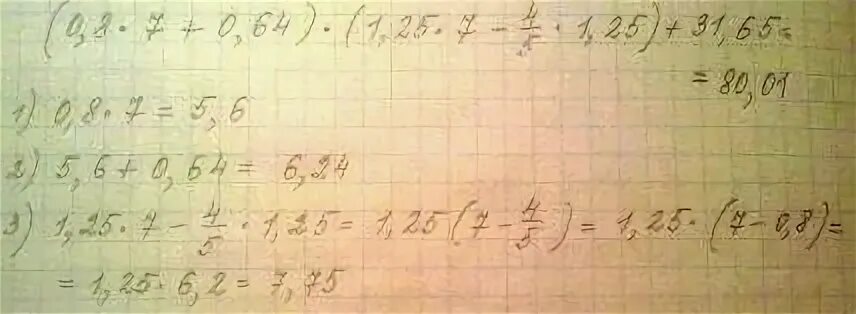 (0,8 · 7 + 0,64) · (1,25 · 7 − 4/5 · 1,25) + 31,65 =
= 80,01
1) 0,8 · 7 = 5,6
2) 5,6 + 0,64 = 6,24
3) 1,25 · 7 − 4/5 · 1,25 = 1,25 (7 − 4/5) = 1,25 · (7 − 0,8) =
= 1,25 · 6,2 = 7,75